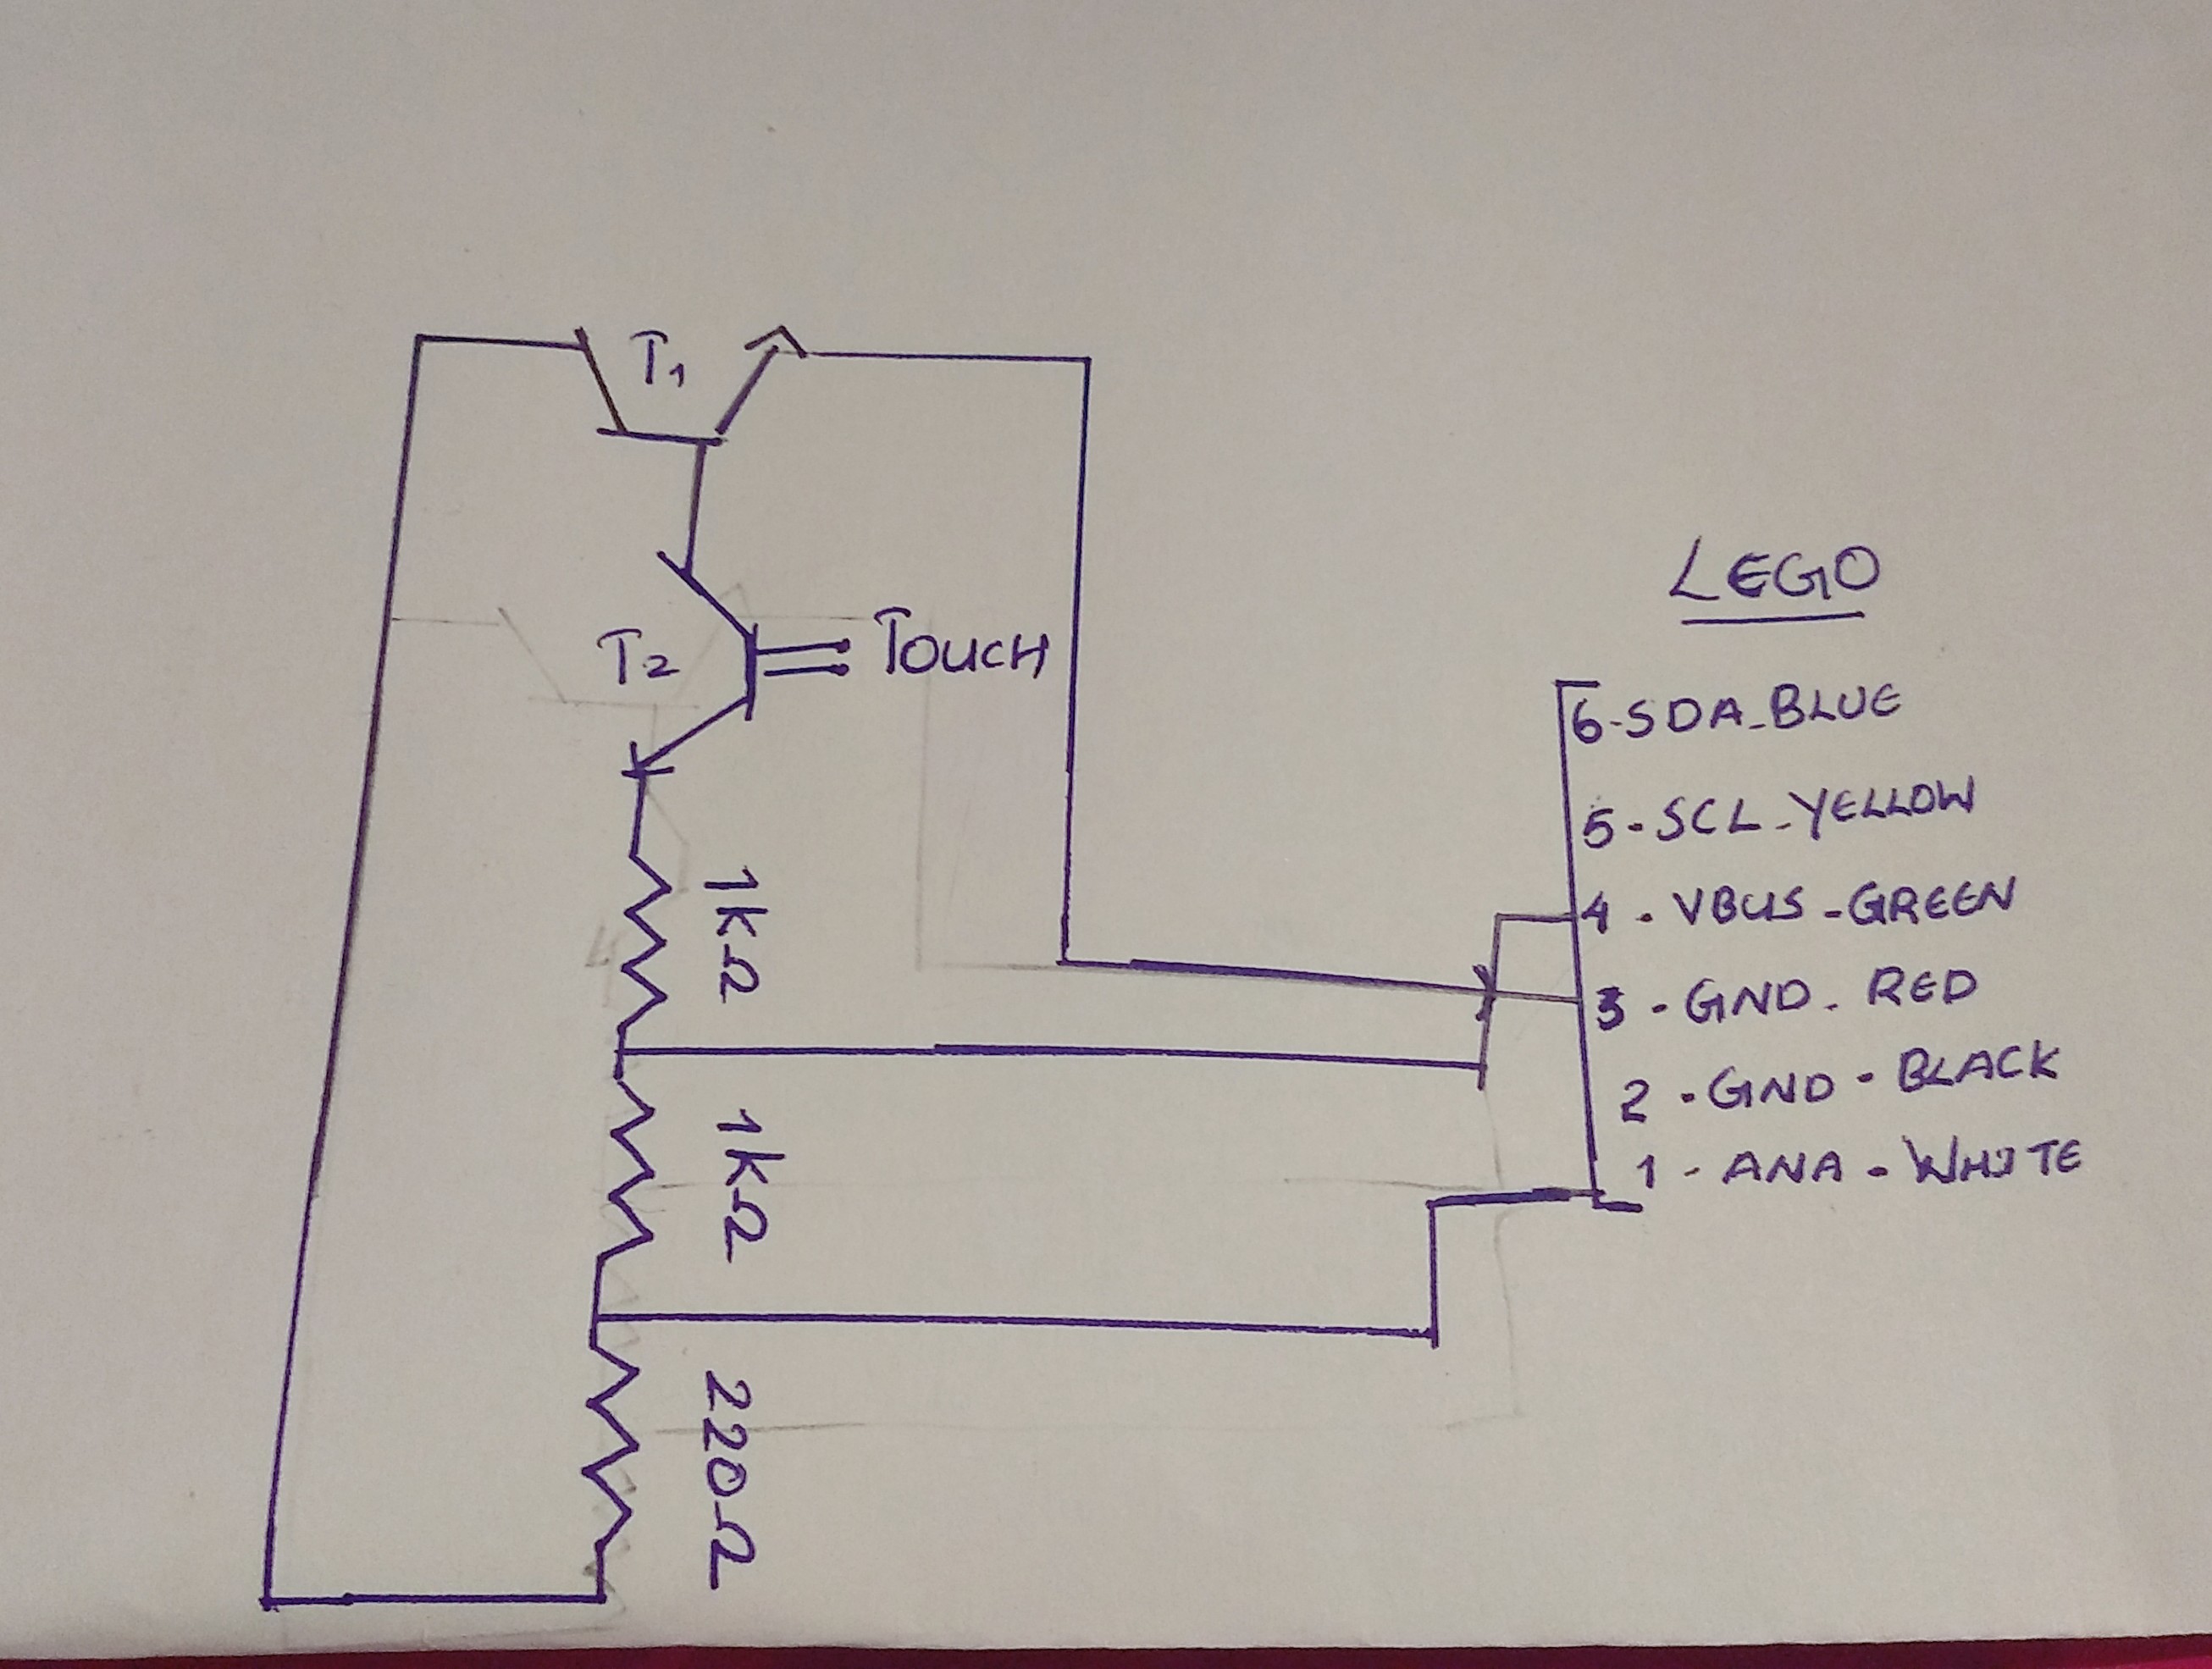 T1
T2
TOUCH
1kΩ
1kΩ
220Ω
LEGO
6-SDA-BLUE
5-SCL-YELLOW
4-VBUS-GREEN
3-GND-RED
2-GND-BLACK
1-ANA-WHITE